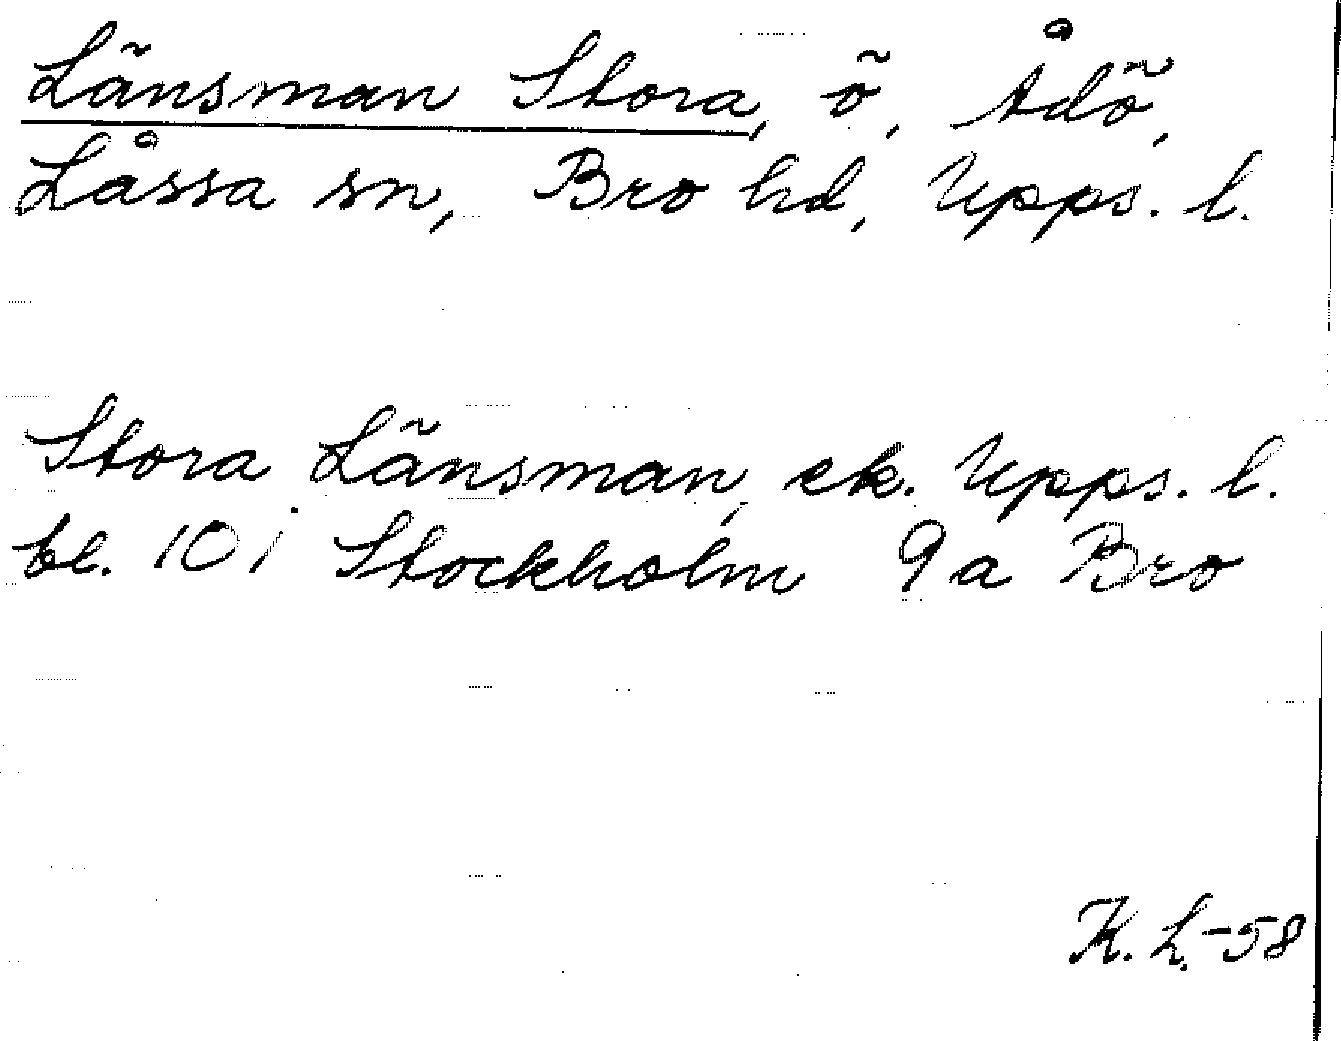 Länsman Stora, ö, Ådö,
Låssa sn, Bro hd, Upps. l.
Stora Länsman, ek. Upps. l.
bl. 10 i Stockholm 9a Bro
K. L.-58